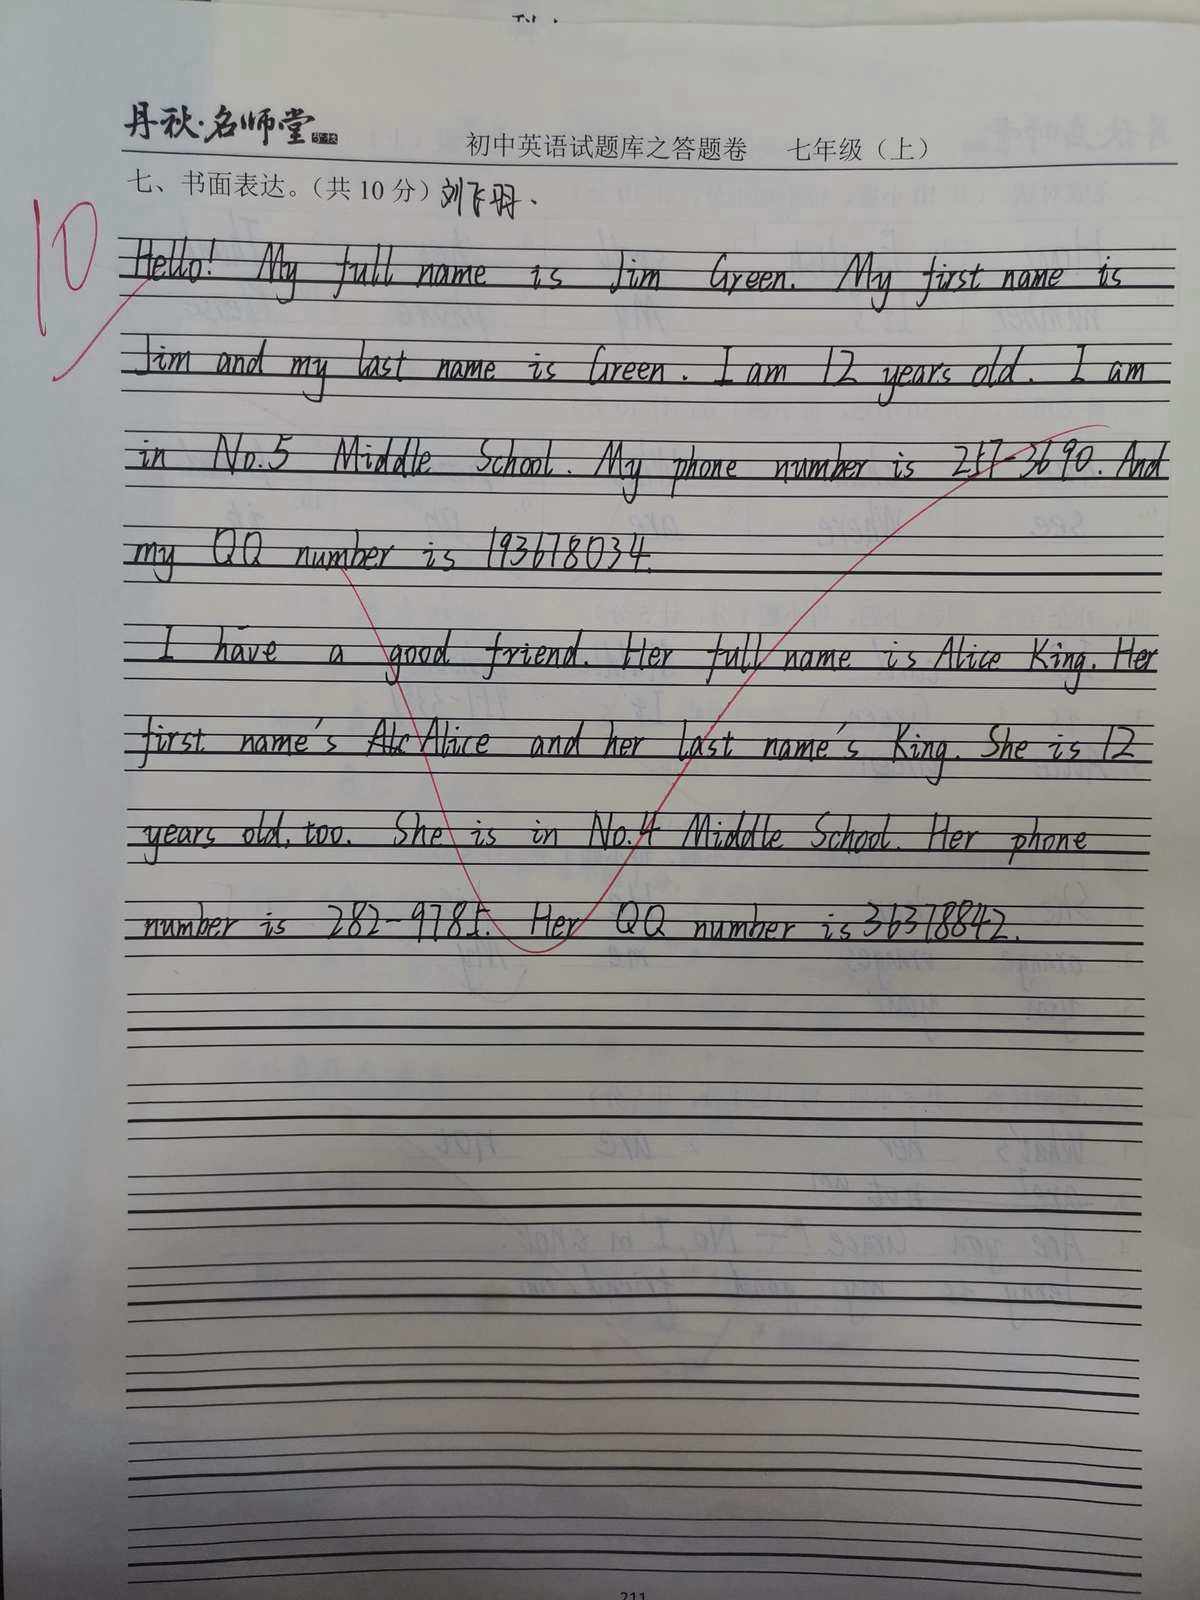 丹秋·名师堂
初中英语试题库之答题卷 七年级（上）
七、书面表达。（共 10 分）刘飞羽.
10
Hello! My full name is Jim Green. My first name is
Jim and my last name is Green. I am 12 years old. I am
in No.5 Middle School. My phone number is 257-3690. And
my QQ number is 193678034.
I have a good friend. Her full name is Alice King. Her
first name's Alice and her last name's King. She is 12
years old, too. She is in No.4 Middle School. Her phone
number is 282-9785. Her QQ number is 36378842.
211